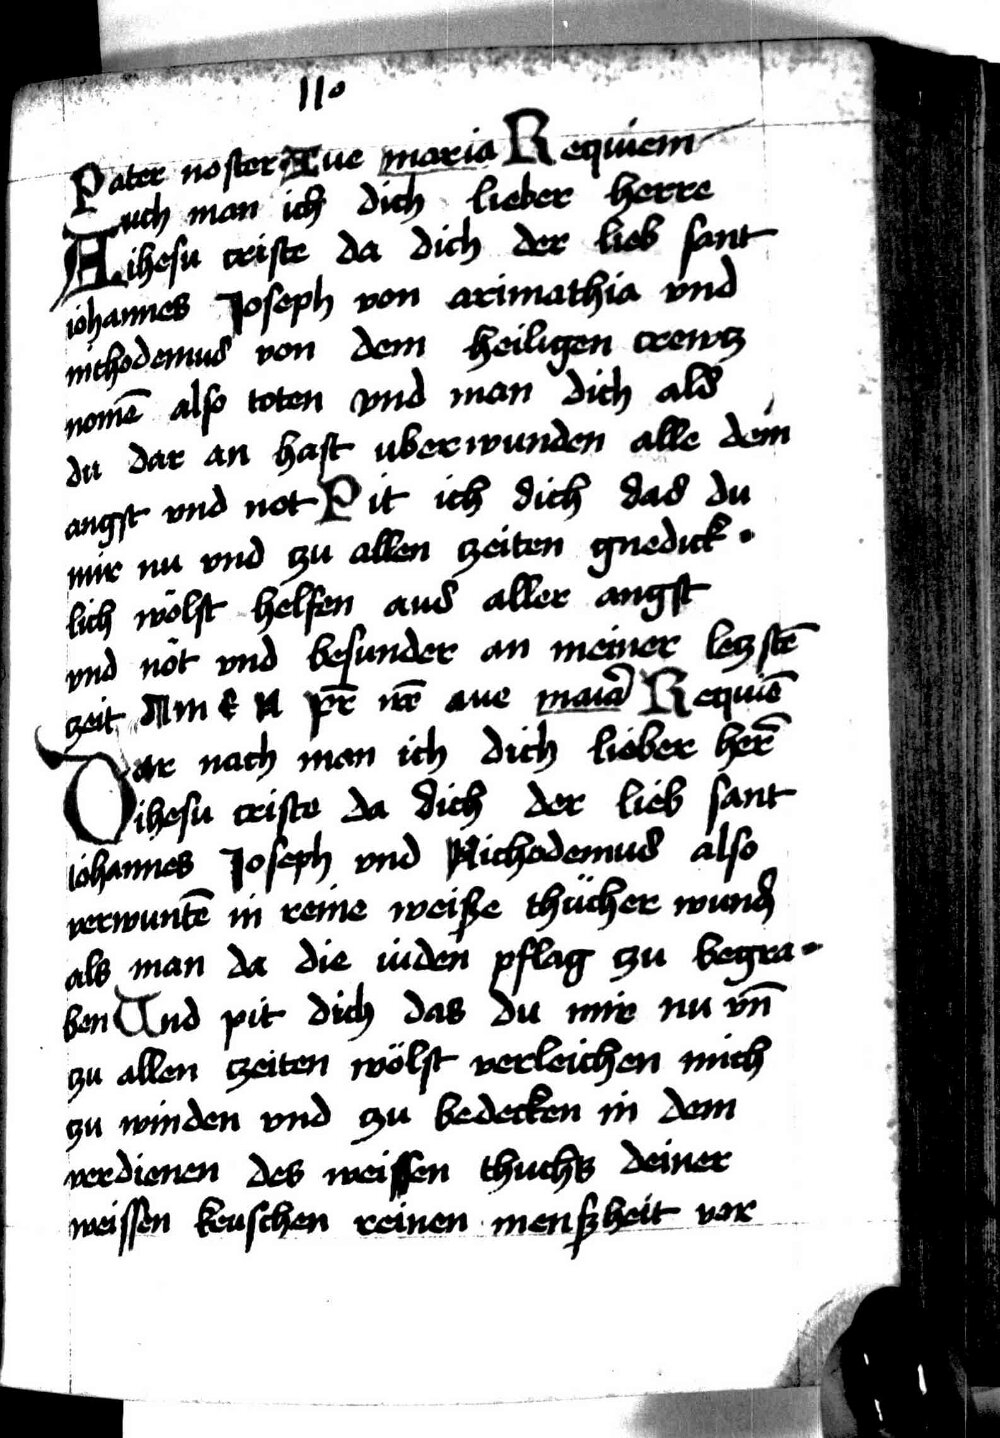 110
Pater noster Aue maria Requiem
Auch man ich dich lieber herre
ihesu criste da dich der lieb sant
iohannes Joseph von arimathia vnd
nichodemus von dem heiligen crewtz
nomē also toten vnd man dich als
du dar an hast uberwunden alle dein
angst vnd not Pit ich dich das du
mir nu vnd zu allen zeiten gnedick
lich wölst helfen aus aller angst
vnd nöt vnd besunder an meiner letzstē
zeit AmEN pr̄ nr̄ aue maria Requiē
Dar nach man ich dich lieber herr̄
ihesu criste da dich der lieb sant
iohannes Joseph vnd Nichodemus also
verwuntē in reine weiße thücher wund
als man da die iuden pflag zu begra-
ben Vnd pit dich das du mir nu vn̄
zu allen zeiten wölst verleichen mich
zu winden vnd zu bedecken in dem
verdienen des weissen thuchs deiner
weissen keuschen reinen menßheit vor